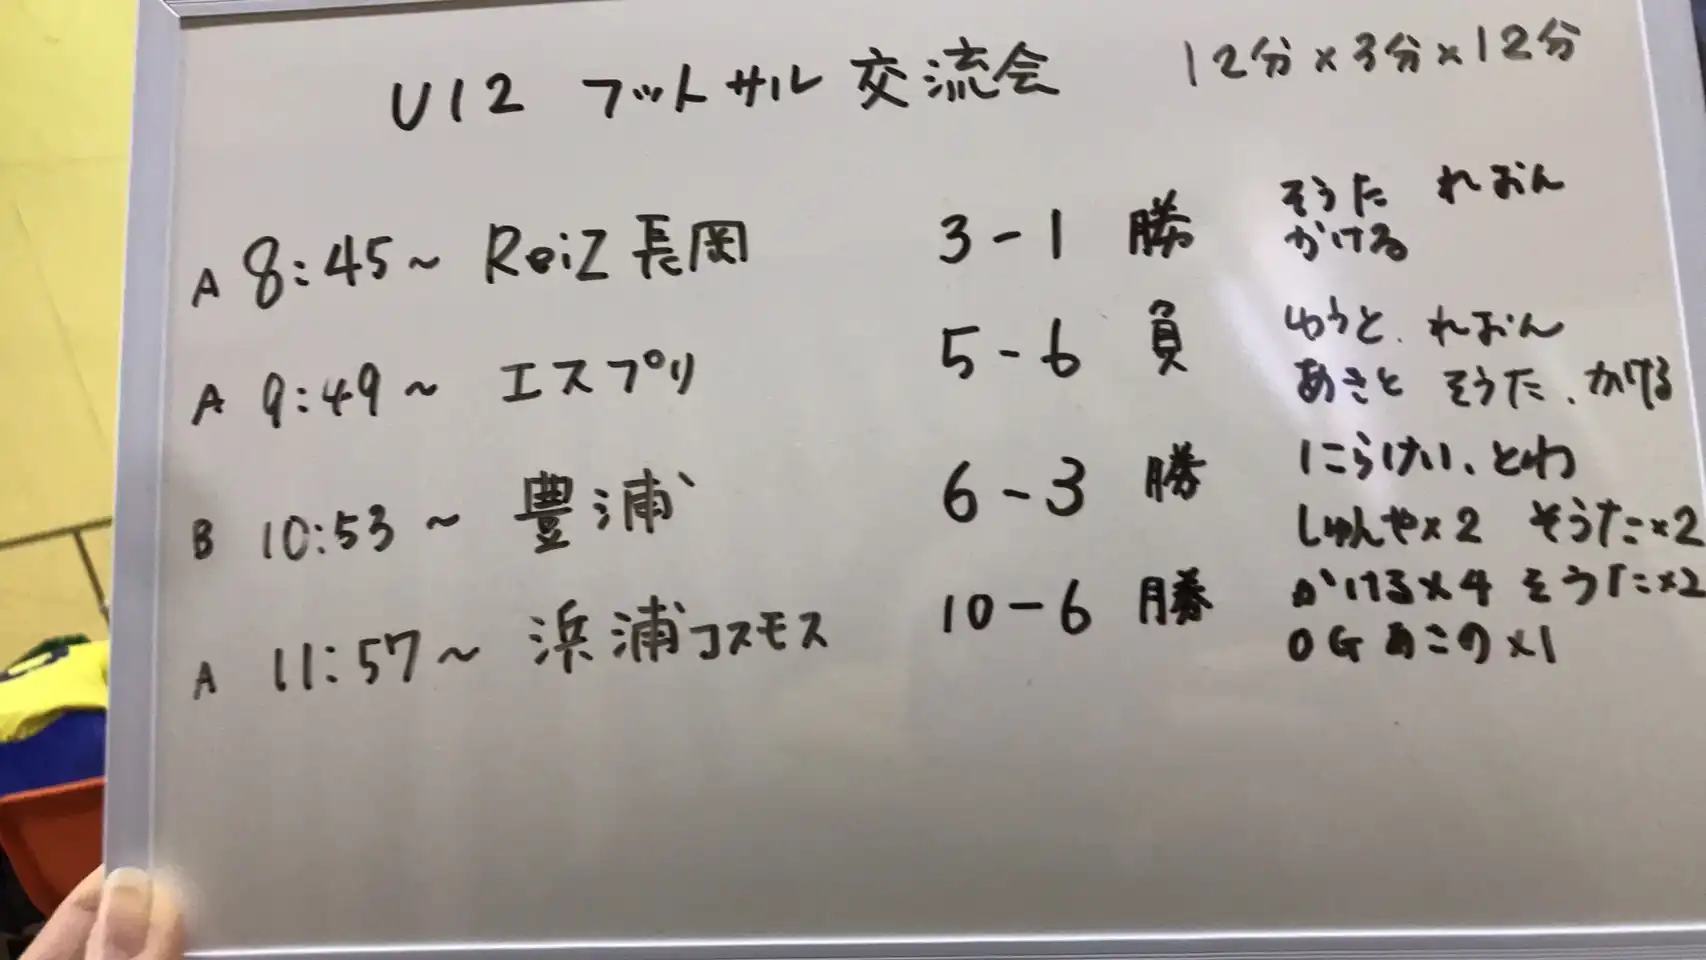 U12 フットサル 交流会 12分×3分×12分
A 8:45~ ReiZ長岡 3-1 勝 そうた れおん
かける
A 9:49~ エスプリ 5-6 負 ゆうと. れおん
あきと そうた. かける
B 10:53~ 豊浦 6-3 勝 にらけい、とわ
しゅんや×2 そうた×2
A 11:57~ 浜浦コスモス 10-6 勝 かける×4 そうた×2
OG ×1